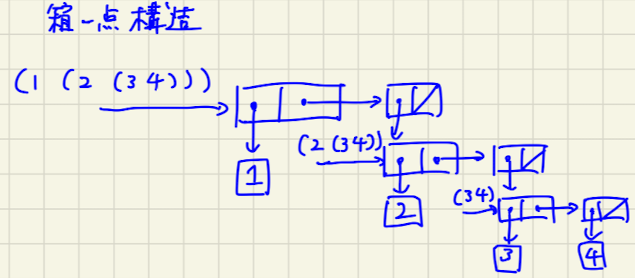 箱-点構造
(1 (2 (3 4)))
(2 (34))
1
(34)
2
3
4